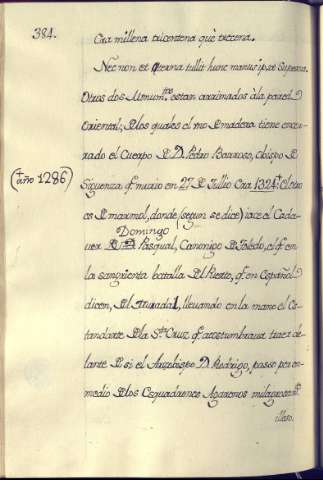 384.
Era millena tricentena què trecena.
Nec non et quterna tullit hunc manus ipsa Superna.
Otros dos Monum.tos estan arrimados à la pared
Oriental; De los quales el uno De madera tiene encer-
rado el Cuerpo De D. Pedro Barroso, Obispo De
Siguenza q.e murio en 27 De Jullio Era 1324† El otro
(† año 1286)
es De marmol, donde (segun se dice) iace el Cada-
Domingo
ver De Pasqual, Canonigo De Toledo, el q.e en
la sangrienta batalla Del Puerto, q.e en Español
dicen, Del Muradal, lleuando en la mano el Es-
tandarte De la S.ta Cruz q.e acostumbraua traer de-
lante De si el Arzobispo D. Rodrigo, passo por en-
medio De los Esquadrones Agarenos milagrosam.te
illeso.